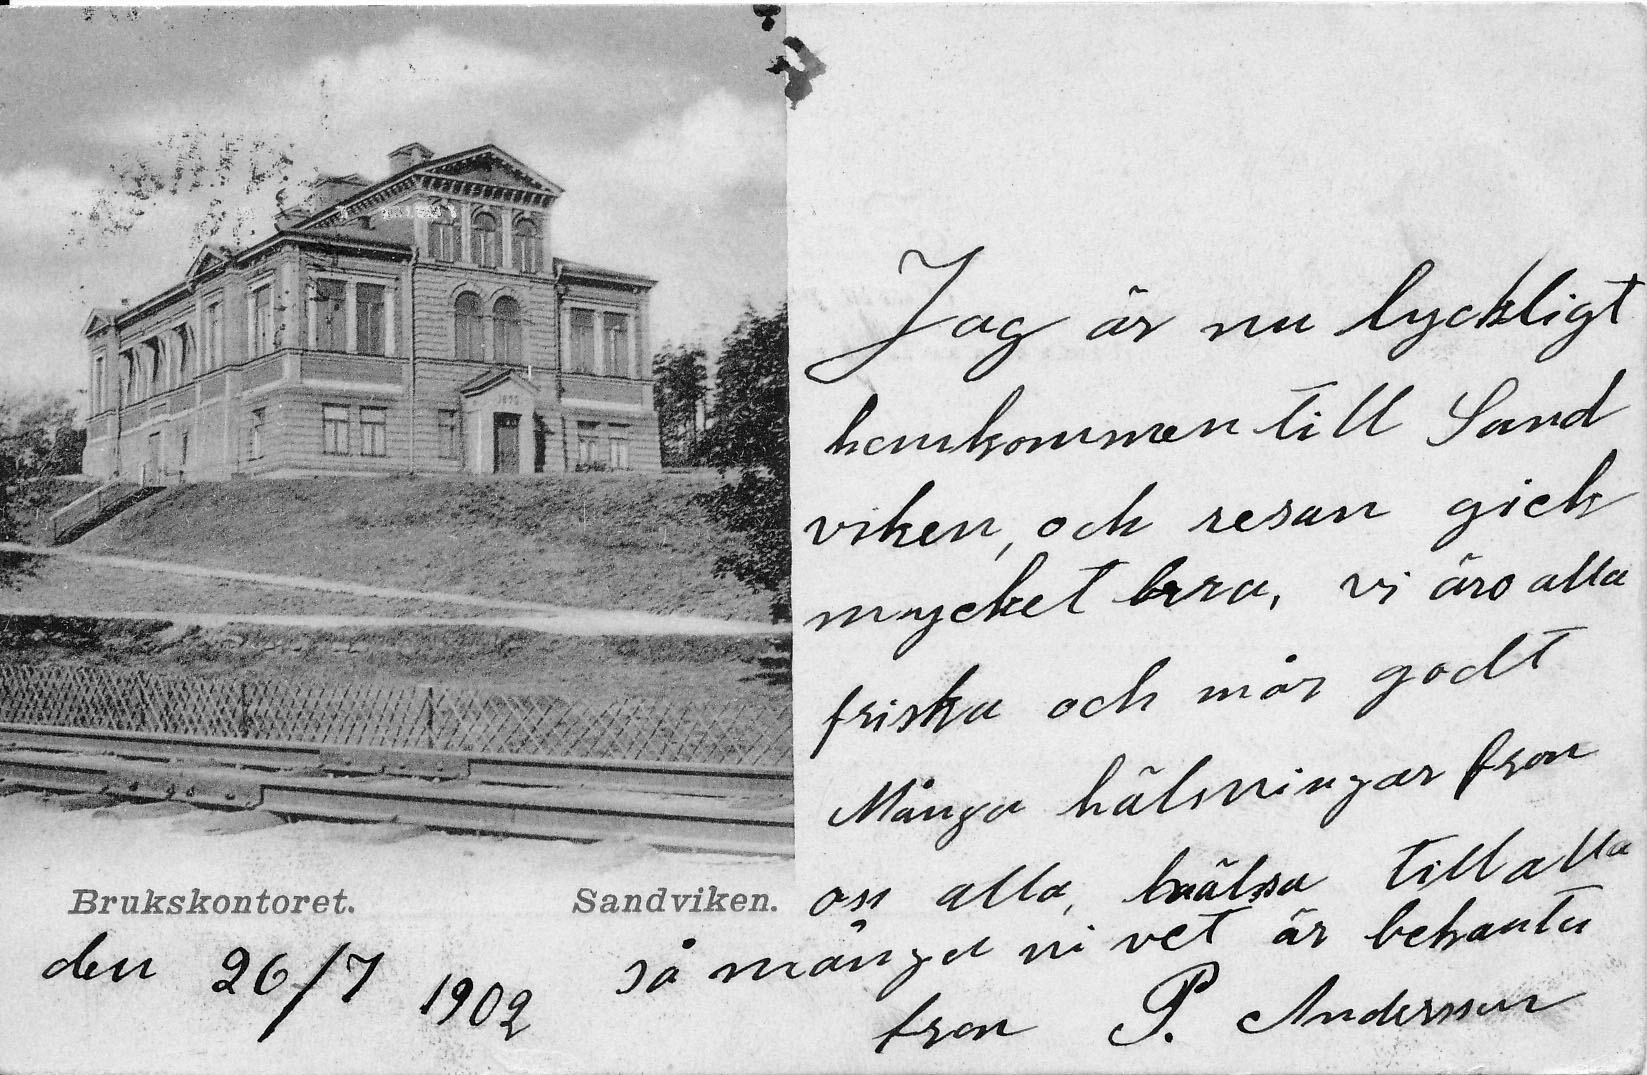 Jag är nu lyckligt
hemkommen till Sand
viken, och resan gick
mycket bra, vi äro alla
friska och mår godt
Många hälsningar fron
oss alla, hälsa till alla
så många ni vet är bekanta
fron P. Andersson
Brukskontoret. Sandviken.
den 26/7 1902